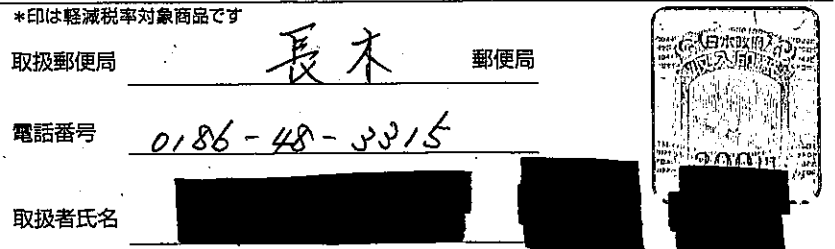 *印は軽減税率対象商品です
取扱郵便局 長木 郵便局
電話番号 0186-48-3315
取扱者氏名
日本政府
収入印紙
200円